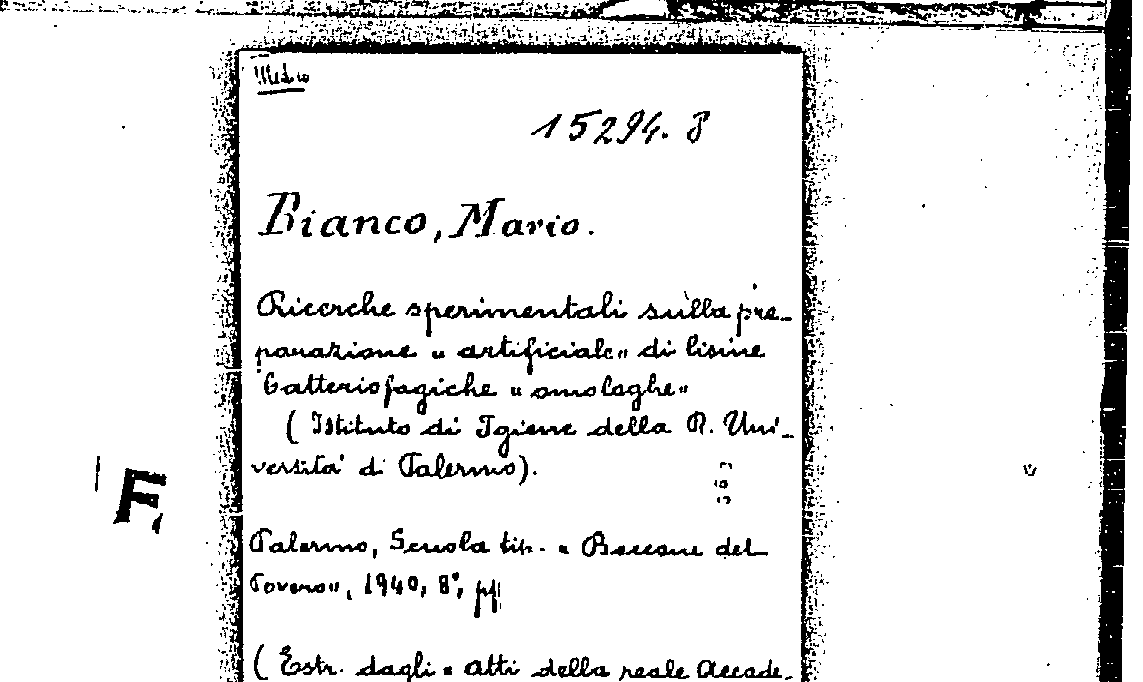 Medico
15294. 8
Bianco, Mario.
Ricerche sperimentali sulla pre-
parazione " artificiale" di lisine
batteriofagiche " omologhe"
( Istituto di Igiene della R. Uni-
versità di Palermo).
F.
Palermo, Scuola tip. " Boccone del
Povero", 1940, 8°, pp
( Estr. dagli " Atti della reale Accade-